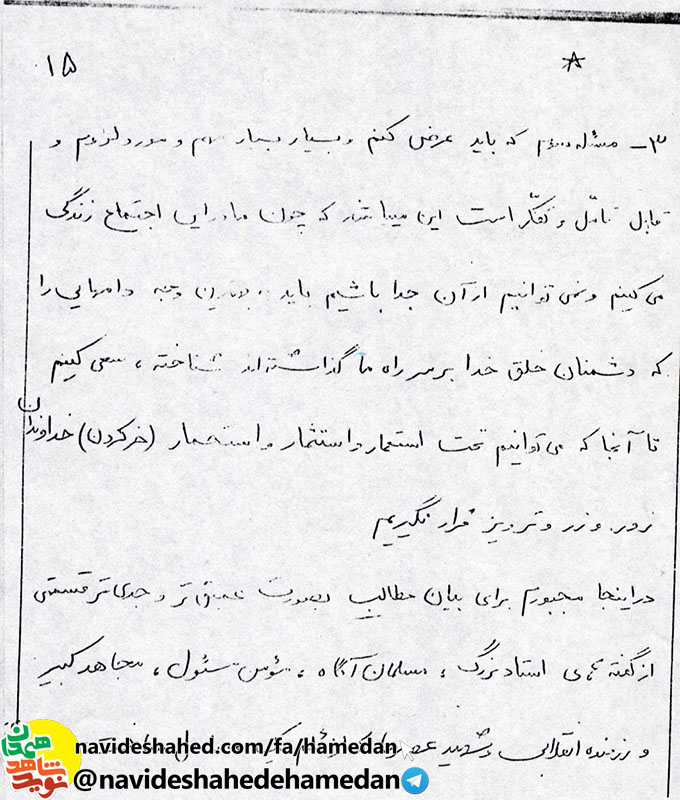 ۱۵
۳- مسئله سوم که باید عرض کنم و بسیار بسیار مهم و مورد لزوم و
قابل تأمّل و تفکّر است این میباشد که چون ما دراین اجتماع زندگی
می کنیم و نمی توانیم از آن جدا باشیم باید به بهترین وجه دامهایی را
که دشمنان خلق خدا بر سر راه ما گذاشته اند شناخته ، سعی کنیم
تا آنجا که می توانیم تحت استعمار و استثمار و استحمار (خر کردن) خداوندان
زور و زر و تزویر قرار نگیریم
در اینجا مجبورم برای بیان مطالب بصورت عمیق تر و جدی تر قسمتی
از گفته های استاد بزرگ ، مسلمان آگاه ، مؤمن مسئول ، مجاهد کبیر
و رزمنده انقلابی و شهید
navideshahed.com/fa/hamedan
@navideshahedehamedan
نوید شاهد همدان